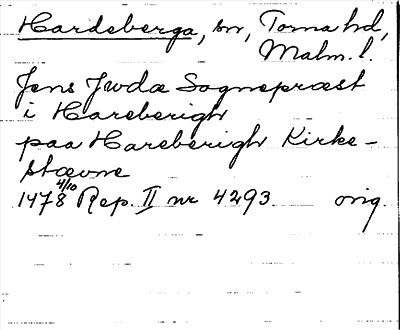 Hardeberga, sn, Torna hd,
Malm. l.
Jens Jwdæ Sognepræst
i Hareberigh
paa Hareberigh Kirke-
stævne
1478 4/10 Rep. II nr 4293. orig.